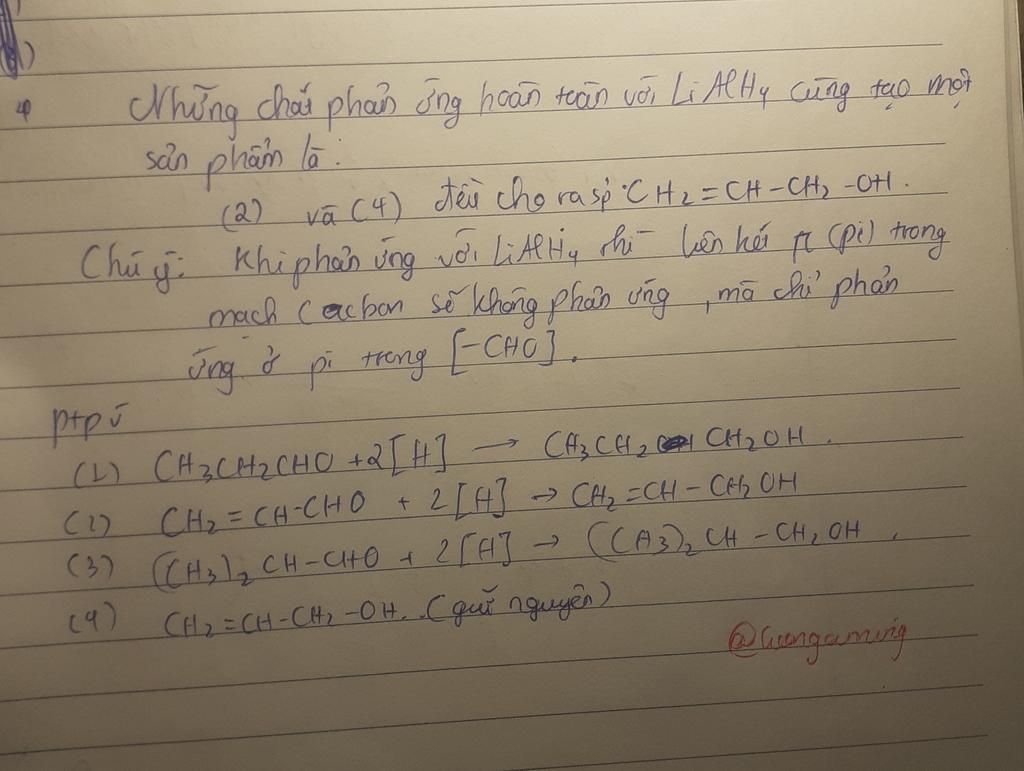 Những chất phản ứng hoàn toàn với LiAlH4 cùng tạo một
sản phẩm là:
(2) và (4) đều cho ra sp CH2=CH-CH2-OH.
Chú ý: Khi phản ứng với LiAlH4 thì liên kết π (pi) trong
mạch Cacbon sẽ không phản ứng, mà chỉ phản
ứng ở pi trong [-CHO].
ptpư
(1) CH3CH2CHO +2[H] → CH3CH2 CH2OH.
(2) CH2=CH-CHO + 2[H] → CH2=CH-CH2OH
(3) (CH3)2CH-CHO + 2[H] → (CH3)2CH-CH2OH.
(4) CH2=CH-CH2-OH. (giữ nguyên)